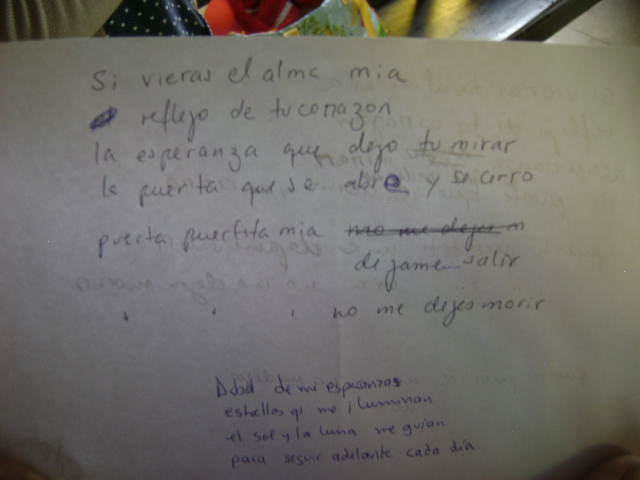 Si vieras el alma mia
reflejo de tu corrazon
la esperanza que dejo tu mirar
la puerta que se abre y se cerro
puerta puertita mia no me dejes m
dejame salir
" " " no me dejes morir
de mi esperanzas
estrellas q' me iluminan
el sol y la luna me guian
para seguir adelante cada dia